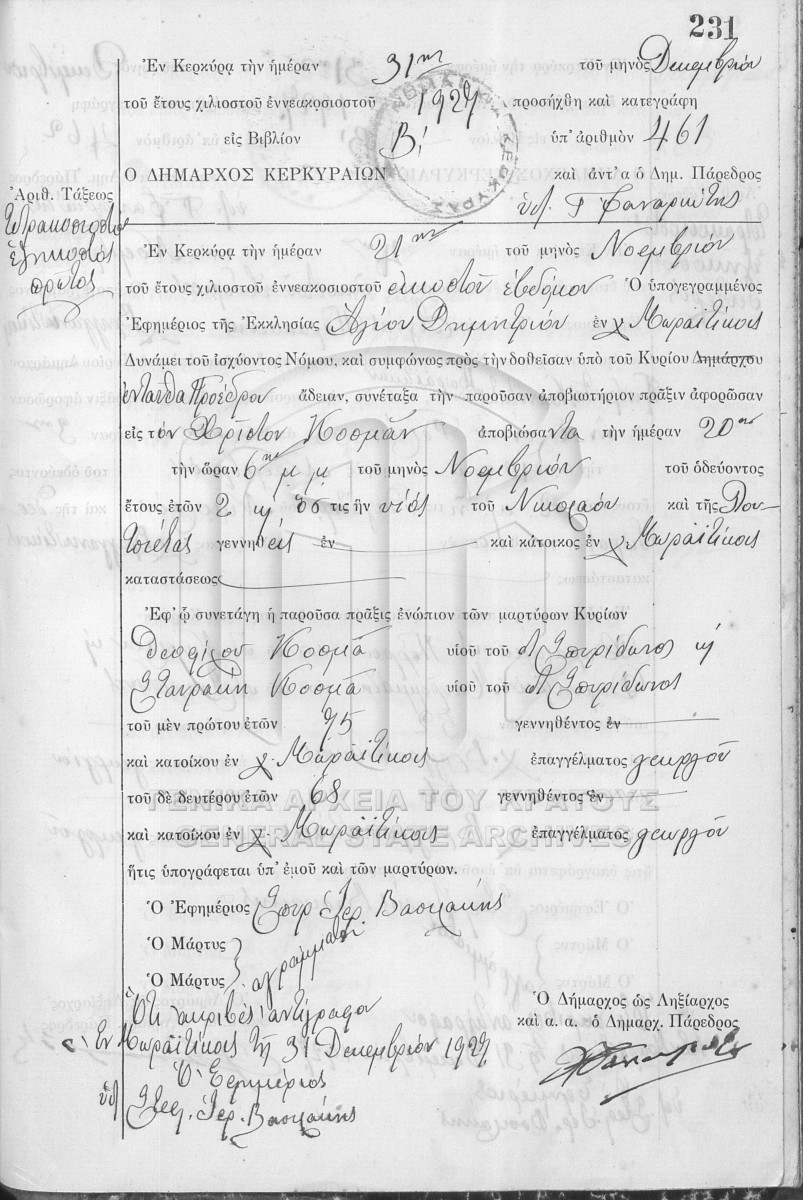 231
Ἐν Κερκύρᾳ τὴν ἡμέραν 31ην τοῦ μηνὸς Δεκεμβρίου
τοῦ ἔτους χιλιοστοῦ ἐννεακοσιοστοῦ 1927 προσήχθη καὶ κατεγράφη
εἰς Βιβλίον Β! ὑπ' ἀριθμὸν 461
Ο ΔΗΜΑΡΧΟΣ ΚΕΡΚΥΡΑΙΩΝ καὶ ἀντ' α ὁ Δημ. Πάρεδρος
Ἀριθ. Τάξεως
ὑπ. Γ Φαναριώτης
τετρακοσιοστὸς
ἑξηκοστὸς
πρῶτος
Ἐν Κερκύρᾳ τὴν ἡμέραν 21ην τοῦ μηνὸς Νοεμβρίου
τοῦ ἔτους χιλιοστοῦ ἐννεακοσιοστοῦ εἰκοστοῦ ἑβδόμου Ὁ ὑπογεγραμμένος
Ἐφημέριος τῆς Ἐκκλησίας Ἁγίου Δημητρίου ἐν χ Μωραϊτίκοις
Δυνάμει τοῦ ἰσχύοντος Νόμου, καὶ συμφώνως πρὸς τὴν δοθεῖσαν ὑπὸ τοῦ Κυρίου Δημάρχου
ἐνταῦθα Προέδρου ἄδειαν, συνέταξα τὴν παροῦσαν ἀποβιωτήριον πρᾶξιν ἀφορῶσαν
εἰς τὸν Χρῖστον Κοσμᾶν ἀποβιώσαντα τὴν ἡμέραν 20ην
τὴν ὥραν 6ην μ. μ. τοῦ μηνὸς Νοεμβρίου τοῦ ὁδεύοντος
ἔτους ἐτῶν 2 ὅστις ἦν υἱός τοῦ Νικολάου καὶ τῆς
γεννηθείς ἐν καὶ κάτοικος ἐν χ Μωραϊτίκοις
καταστάσεως
Ἐφ' ᾧ συνετάγη ἡ παροῦσα πρᾶξις ἐνώπιον τῶν μαρτύρων Κυρίων
Θεοφίλου Κοσμᾶ υἱοῦ τοῦ Σπυρίδωνος
Σταυράκη Κοσμᾶ υἱοῦ τοῦ Σπυρίδωνος
τοῦ μὲν πρώτου ἐτῶν 75 γεννηθέντος ἐν
καὶ κατοίκου ἐν χ. Μωραϊτίκοις ἐπαγγέλματος γεωργοῦ
τοῦ δὲ δευτέρου ἐτῶν 68 γεννηθέντος ἐν
ΓΕΝΙΚΑ ΑΡΧΕΙΑ ΤΟΥ ΚΡΑΤΟΥΣ
καὶ κατοίκου ἐν χ. Μωραϊτίκοις ἐπαγγέλματος γεωργοῦ
GENERAL STATE ARCHIVES
ἥτις ὑπογράφεται ὑπ' ἐμοῦ καὶ τῶν μαρτύρων.
Ὁ Ἐφημέριος Σπυρ Ἱερ. Βασιλάκης
Ὁ Μάρτυς
Ὁ Μάρτυς ἀγράμματοι
Ὅτι ἀκριβὲς ἀντίγραφον
Ὁ Δήμαρχος ὡς Ληξίαρχος
καὶ α. α. ὁ Δημαρχ. Πάρεδρος
Ἐν Μωραϊτίκοις τῇ 31 Δεκεμβρίου 1927
Ὁ Ἐφημέριος
ὑπ Σπυρ. Ἱερ. Βασιλάκης